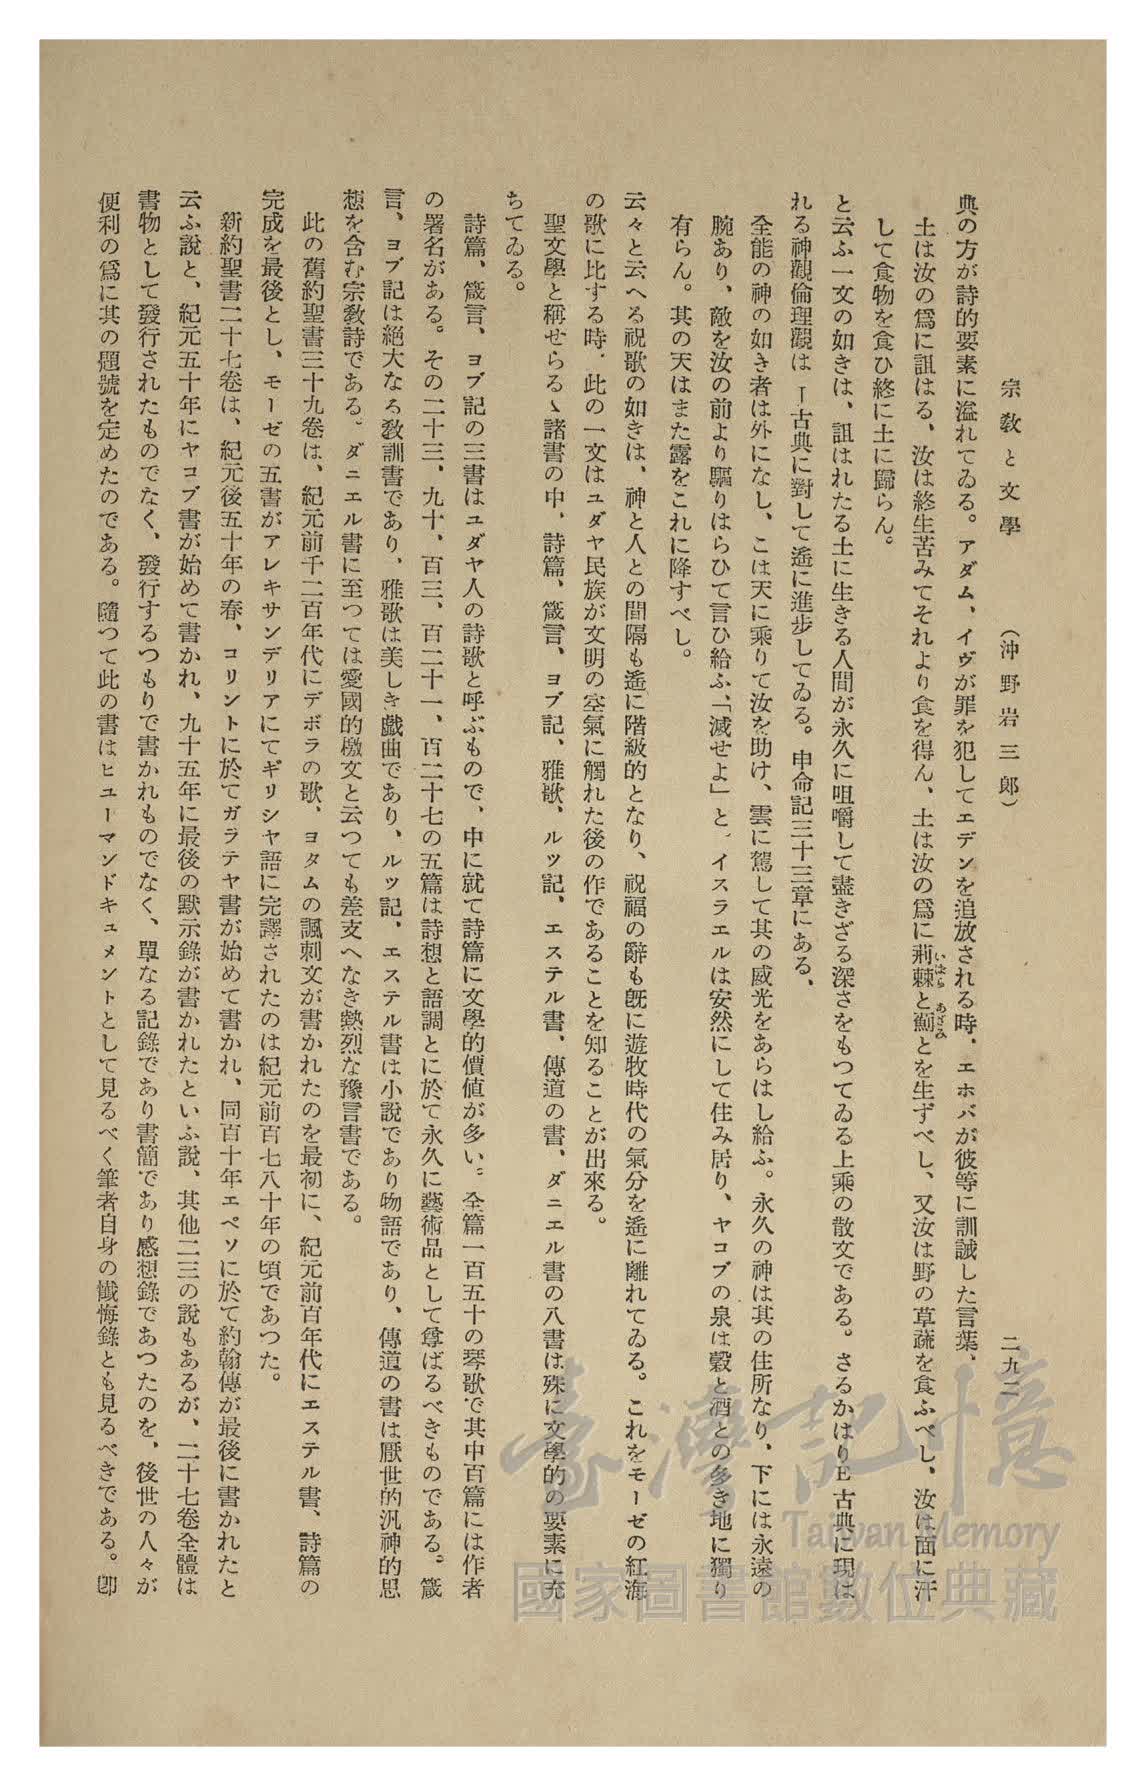 宗教と文學　（沖野岩三郎）　二九二
典の方が詩的要素に溢れてゐる。アダム、イヴが罪を犯してエデンを追放される時、エホバが彼等に訓誡した言葉、
土は汝の爲に詛はる、汝は終生苦みてそれより食を得ん、土は汝の爲に荊棘と薊とを生ずべし、又汝は野の草蔬を食ふべし、汝は面に汗
いばら　あざみ
して食物を食ひ終に土に歸らん。
と云ふ一文の如きは、詛はれたる土に生きる人間が永久に咀嚼して盡きざる深さをもつてゐる上乘の散文である。さるかはりE古典に現は
れる神觀倫理觀は　I古典に對して遙に進步してゐる。申命記三十三章にある、
全能の神の如き者は外になし、こは天に乘りて汝を助け、雲に駕して其の威光をあらはし給ふ。永久の神は其の住所なり、下には永遠の
腕あり、敵を汝の前より驅りはらひて言ひ給ふ、「滅せよ」と、イスラエルは安然にして住み居り、ヤコブの泉は穀と酒との多き地に獨り
有らん。其の天はまた露をこれに降すべし。
云々と云へる祝歌の如きは、神と人との間隔も遙に階級的となり、祝福の辭も既に遊牧時代の氣分を遙に離れてゐる。これをモーゼの紅海
の歌に比する時、此の一文はユダヤ民族が文明の空氣に觸れた後の作であることを知ることが出來る。
聖文學と稱せらるゝ諸書の中、詩篇、箴言、ヨブ記、雅歌、ルツ記、エステル書、傳道の書、ダニエル書の八書は殊に文學的の要素に充
ちてゐる。
詩篇、箴言、ヨブ記の三書はユダヤ人の詩歌と呼ぶもので、中に就て詩篇に文學的價値が多い。全篇一百五十の琴歌で其中百篇には作者
の署名がある。その二十三、九十、百三、百二十一、百二十七の五篇は詩想と語調とに於て永久に藝術品として尊ばるべきものである。箴
言、ヨブ記は絕大なる敎訓書であり、雅歌は美しき戲曲であり、ルツ記、エステル書は小說であり物語であり、傳道の書は厭世的汎神的思
想を含む宗敎詩である。ダニエル書に至つては愛國的檄文と云つても差支へなき熱烈な豫言書である。
此の舊約聖書三十九卷は、紀元前千二百年代にデボラの歌、ヨタムの諷刺文が書かれたのを最初に、紀元前百年代にエステル書、詩篇の
完成を最後とし、モーゼの五書がアレキサンデリアにてギリシヤ語に完譯されたのは紀元前百七八十年の頃であつた。
新約聖書二十七卷は、紀元後五十年の春、コリントに於てガラテヤ書が始めて書かれ、同百十年エペソに於て約翰傳が最後に書かれたと
云ふ說と、紀元五十年にヤコブ書が始めて書かれ、九十五年に最後の默示錄が書かれたといふ說、其他二三の說もあるが、二十七卷全體は
書物として發行されたものでなく、發行するつもりで書かれものでなく、單なる記錄であり書簡であり感想錄であつたのを、後世の人々が
便利の爲に其の題號を定めたのである。隨つて此の書はヒユーマンドキュメントとして見るべく筆者自身の懺悔錄とも見るべきである。卽
臺灣記憶
Taiwan Memory
國家圖書館數位典藏